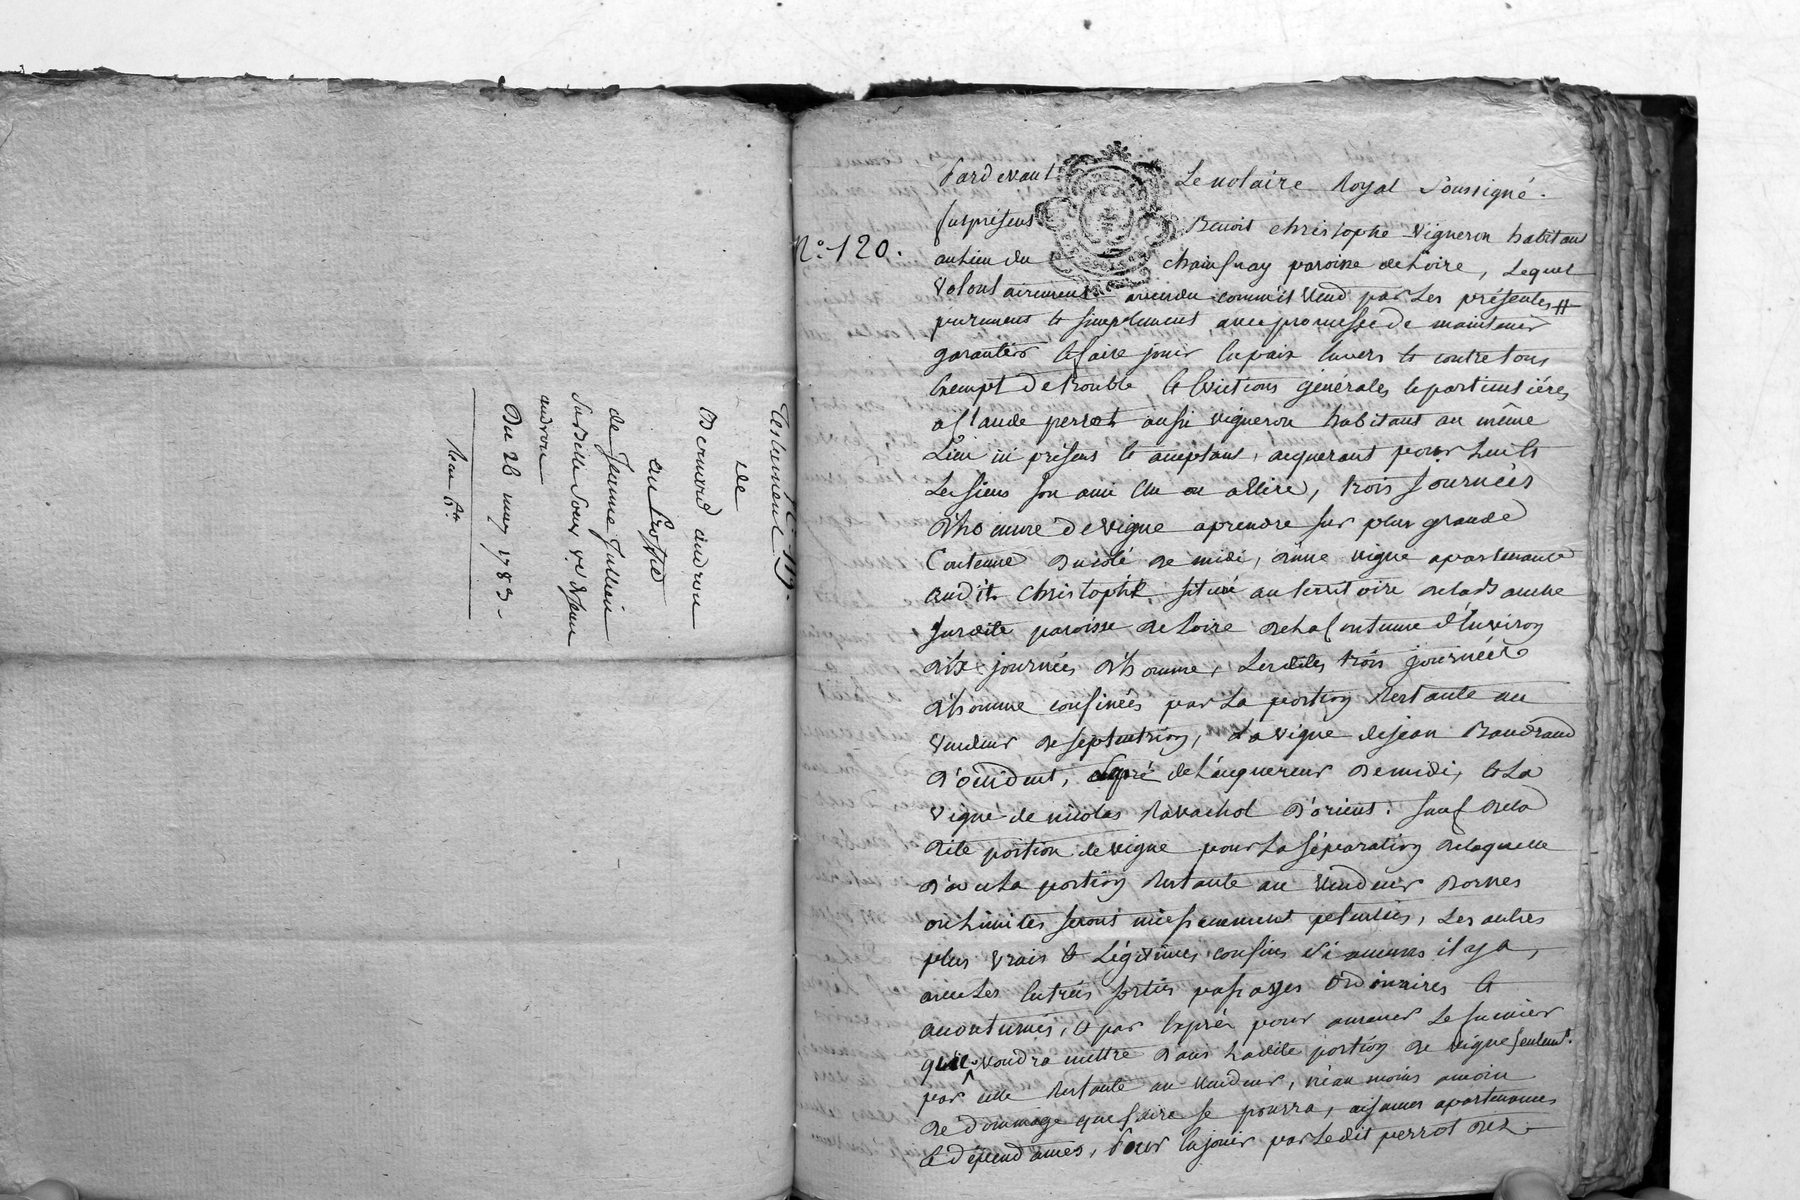 Testament
de
Bernard andron
au Proffit
de Jeanne Jullien
sa Belle Soeur ve d'jean
andron
Du 28 may 1783
N°. 120.
Pardevant Le notaire Royal Soussigné
fut présent Benoit christophe Vigneron habitant
au Lieu du chainfray paroisse de Loire, Lequel
Volontairement a vendu comm'il Vend par Les présentes
purement et simplement avec promesse de maintenir
garantir et faire jouir en paix envers et contre tous
Exempt de trouble et Evictions générales et particuliéres
a Claude perrot aussi vigneron habitant au même
Lieu ici présent et aceptant, aequerant pour Lui et
Les siens son ami Elu ou a Elire, trois Journées
d'homme de vigne a prendre sur plus grande
Contenue du coté de midi, d'une vigne apartenante
audit christophe située au territoire de la
susdite paroisse de Loire de La Contenue d'Environ
dix journées d'homme, Lesdites trois journées
d'homme confinées par La portion Restante au
Vendeur de septentrion, La vigne de jean Baudrand
d'occident, Le pré de L'acquereur de midi, et La
vigne de nicolas Ravachol d'orient: sauf de la
dite portion de vigne pour La séparation de laquelle
d'avec La portion Restante au Vendeur Bornes
ou Limites seront incessamment plantées, Les autres
plus vrais et Légitimes confins si aucuns il y a,
avec Les Entrées sorties passages Ordinaires et
acoutumés, et par Exprès pour amener Le fumier
qu'il voudra mettre dans Ladite portion de vigne seulemt.
par celle Restante au Vendeur, néanmoins a moin
de dommage que faire se pourra, aisances apartenances
et dépendances, Pour En jouir par Ledit perrot dez